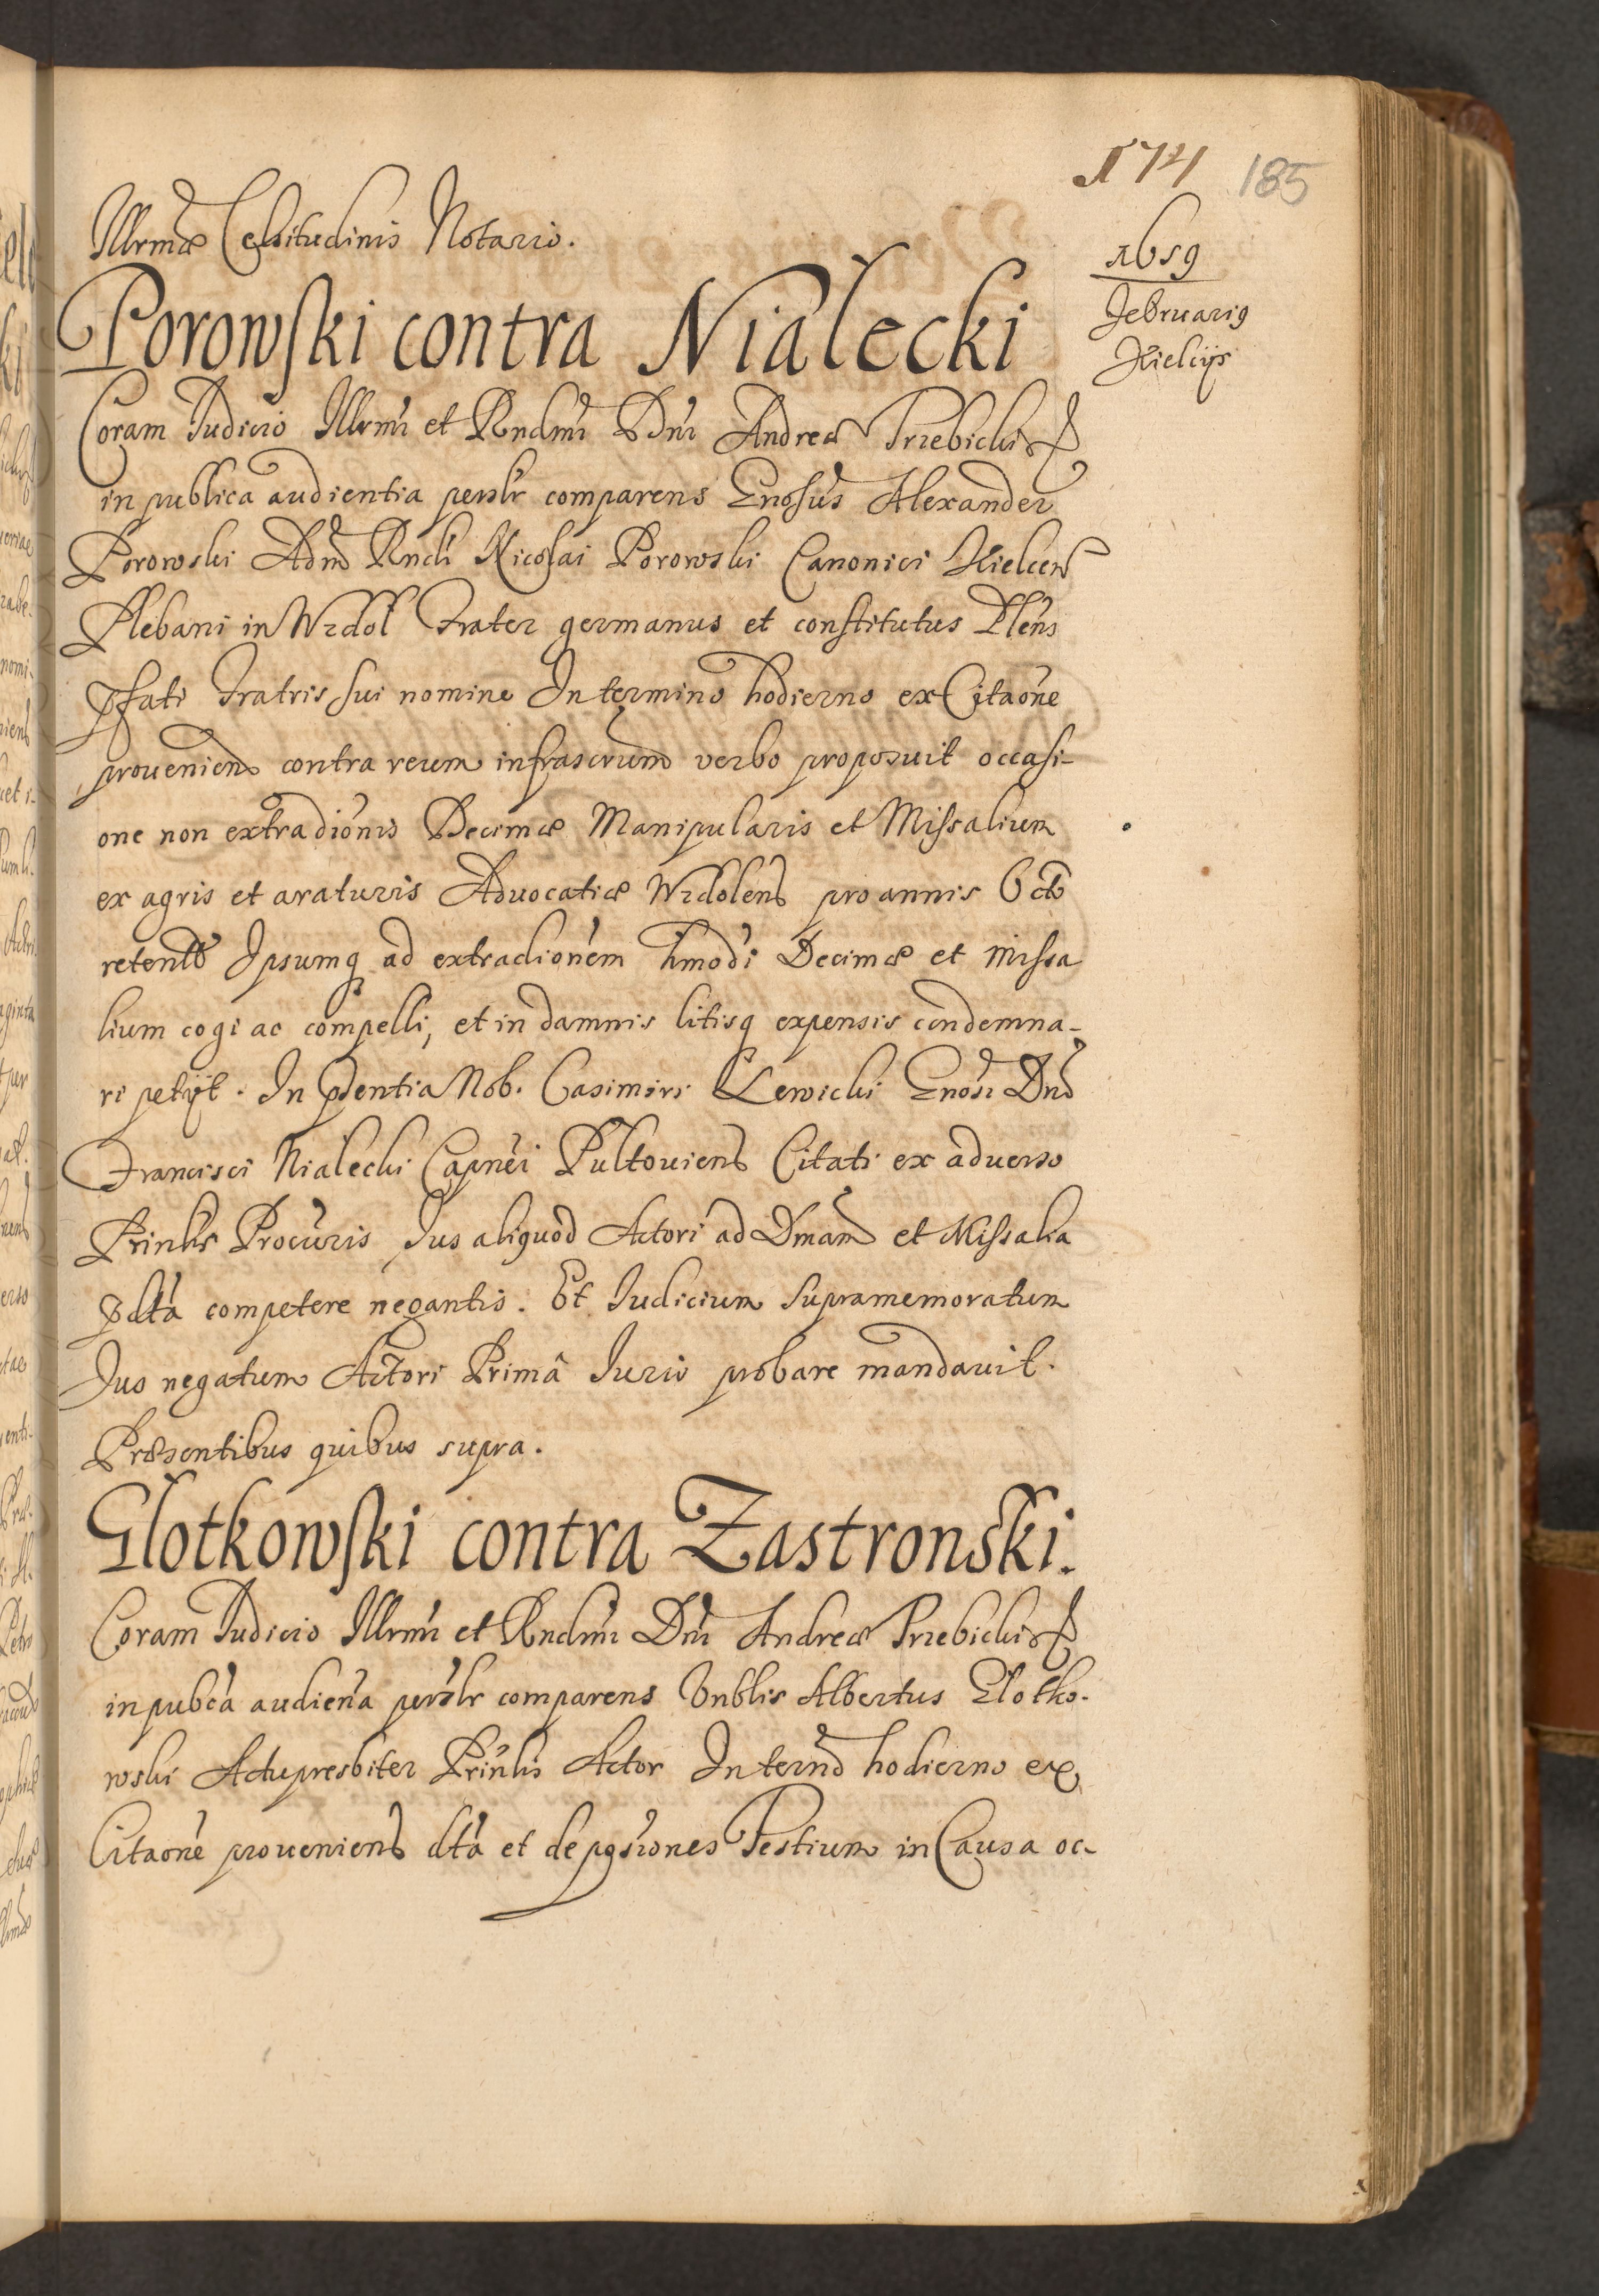 174 185
Illrmæ Celsitudinis Notario.
1659
Februarius
Kielcijs
Porowski contra Nialecki
Coram Judicio Illrmi et Rndmi Ddni Andreæ Trzebicki
in publica audientia persłr comparens Gnosus Alexander
Porowski Adm Rndi Nicolai Porowski Canonici Kielcen
Plebani in Wzdol Frater germanus et constitutus Plens
pfati Fratris sui nomine In termino hodierno ex Citaone
prouenien contra reum infrascrum verbo proposuit occasi-
one non extradionis Decimæ Manipularis et Missalium
ex agris et araturis Aduocatiæ Wzdolens pro annis Octo
retent Ipsumq ad extradionem hmodi Decimæ et missa
lium cogi ac compelli, et in damnis litisq expensis condemna-
ri petijt. In pñtia Nob. Casimiri Lewicki Gnosi Dni
Francisci Nialecki Capnei Pultouiens Citati ex aduerso
Prinlis Procuris Jus aliquod Actori ad Dmam et Missalia
pdta competere negantis. Et Judicium supramemoratum
Jus negatum Actori Prima Juris probare mandauit.
Præsentibus quibus supra.
Glotkowski contra Zastronski.
Coram Judicio Illrmi et Rndmi Dni Andreæ Trzebicki
in pubca audiena persłr comparens Vnblis Albertus Glotko-
wski Actupresbiter Prinlis Actor In termo hodierno ex
Citaone proueniens dta et deposiones Testium in Causa oc-